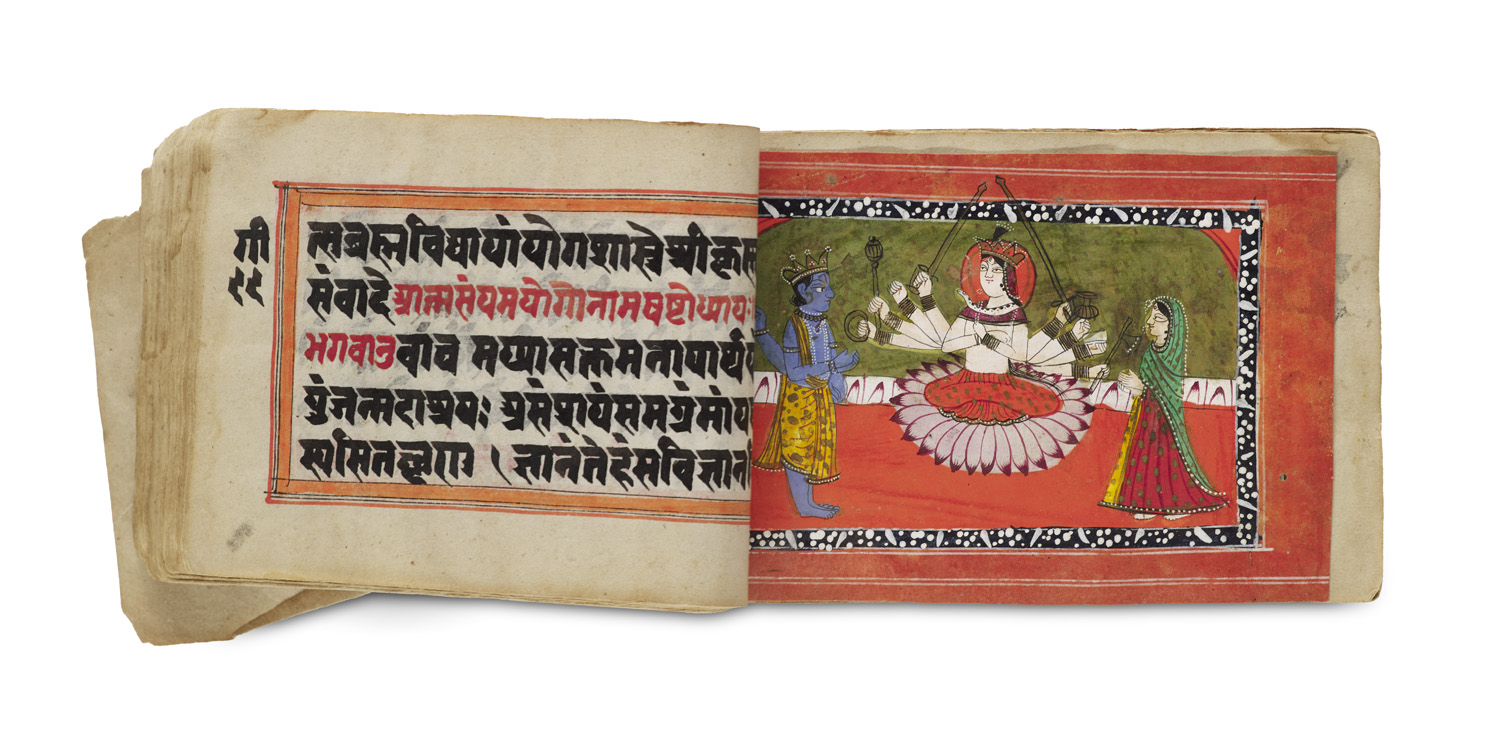 गी
९९
त्सुब्रह्मविद्यायांयोगशास्त्रेश्रीकृ
संवादेआत्मसंयमयोगोनामषष्टोध्याय
भगवानुवाच मय्यासक्तमनापार्थ
युंजन्मदाश्रयः असंशयंसमग्रंमां
स्यसितछृणु १ ज्ञानंतेहंसविज्ञान